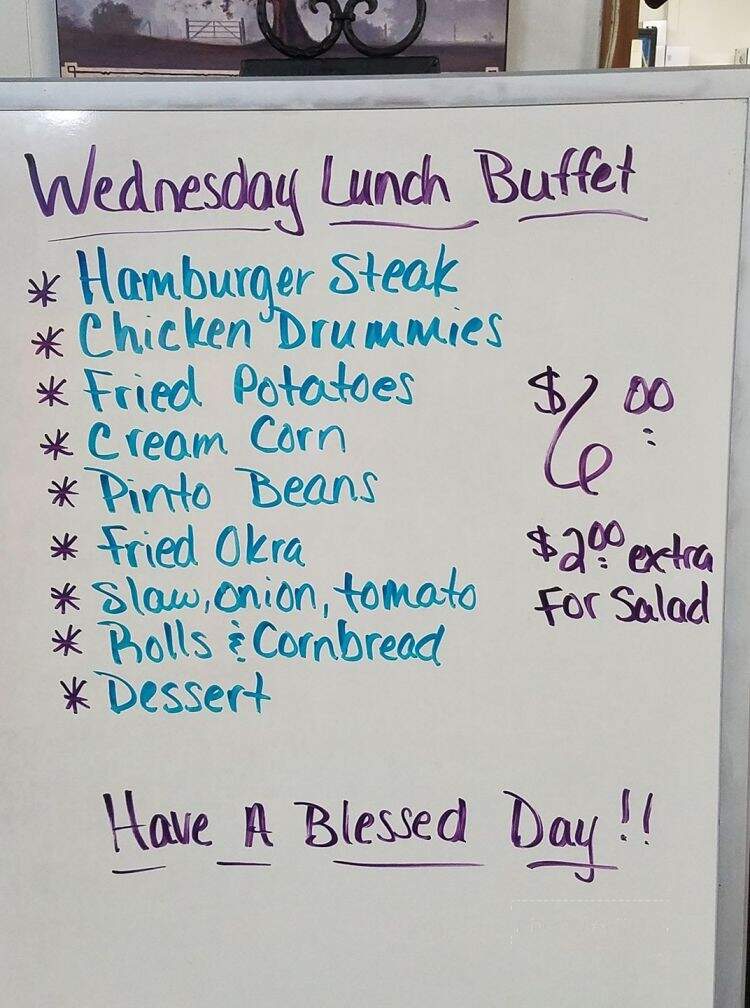 Wednesday Lunch Buffet
* Hamburger Steak
* Chicken Drummies
* Fried Potatoes
* Cream Corn
* Pinto Beans
* Fried Okra
* Slaw, onion, tomato
* Rolls & Cornbread
* Dessert
$6.00
$2.00 extra
For Salad
Have A Blessed Day!!